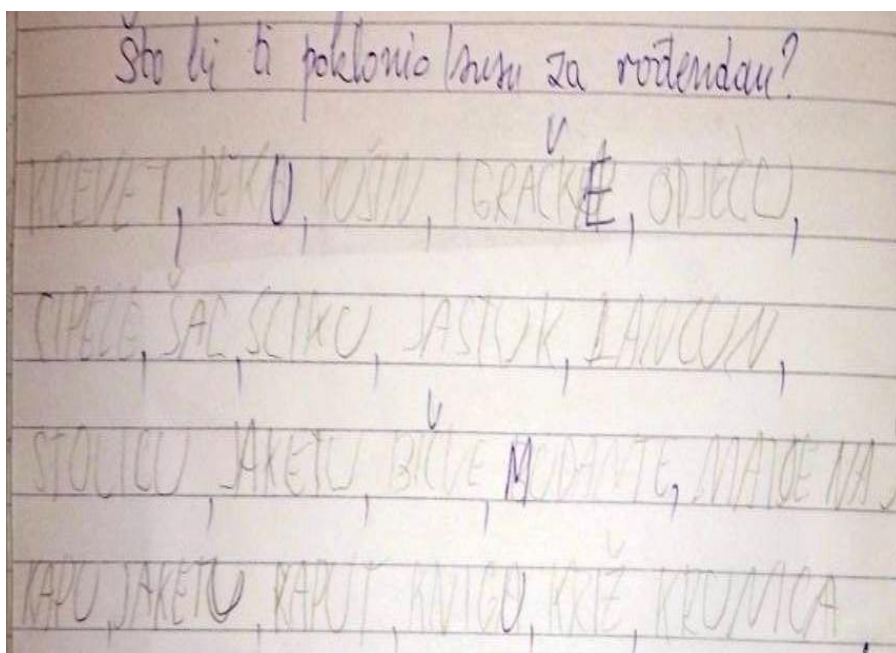 Što bi ti poklonio Isusu za rođendan?
KREVET, DEKU, KUŠIN, IGRAČKE, ODJEČU,
CIPELE, ŠAL, SLIKU, JASTUK, LANCUN,
STOLICU, JAKETU, BIČVE, MUDANTE, MAJCE NA
KAPU, JAKETU, KAPUT, KNIGU, KRIŽ, KRUNICA,